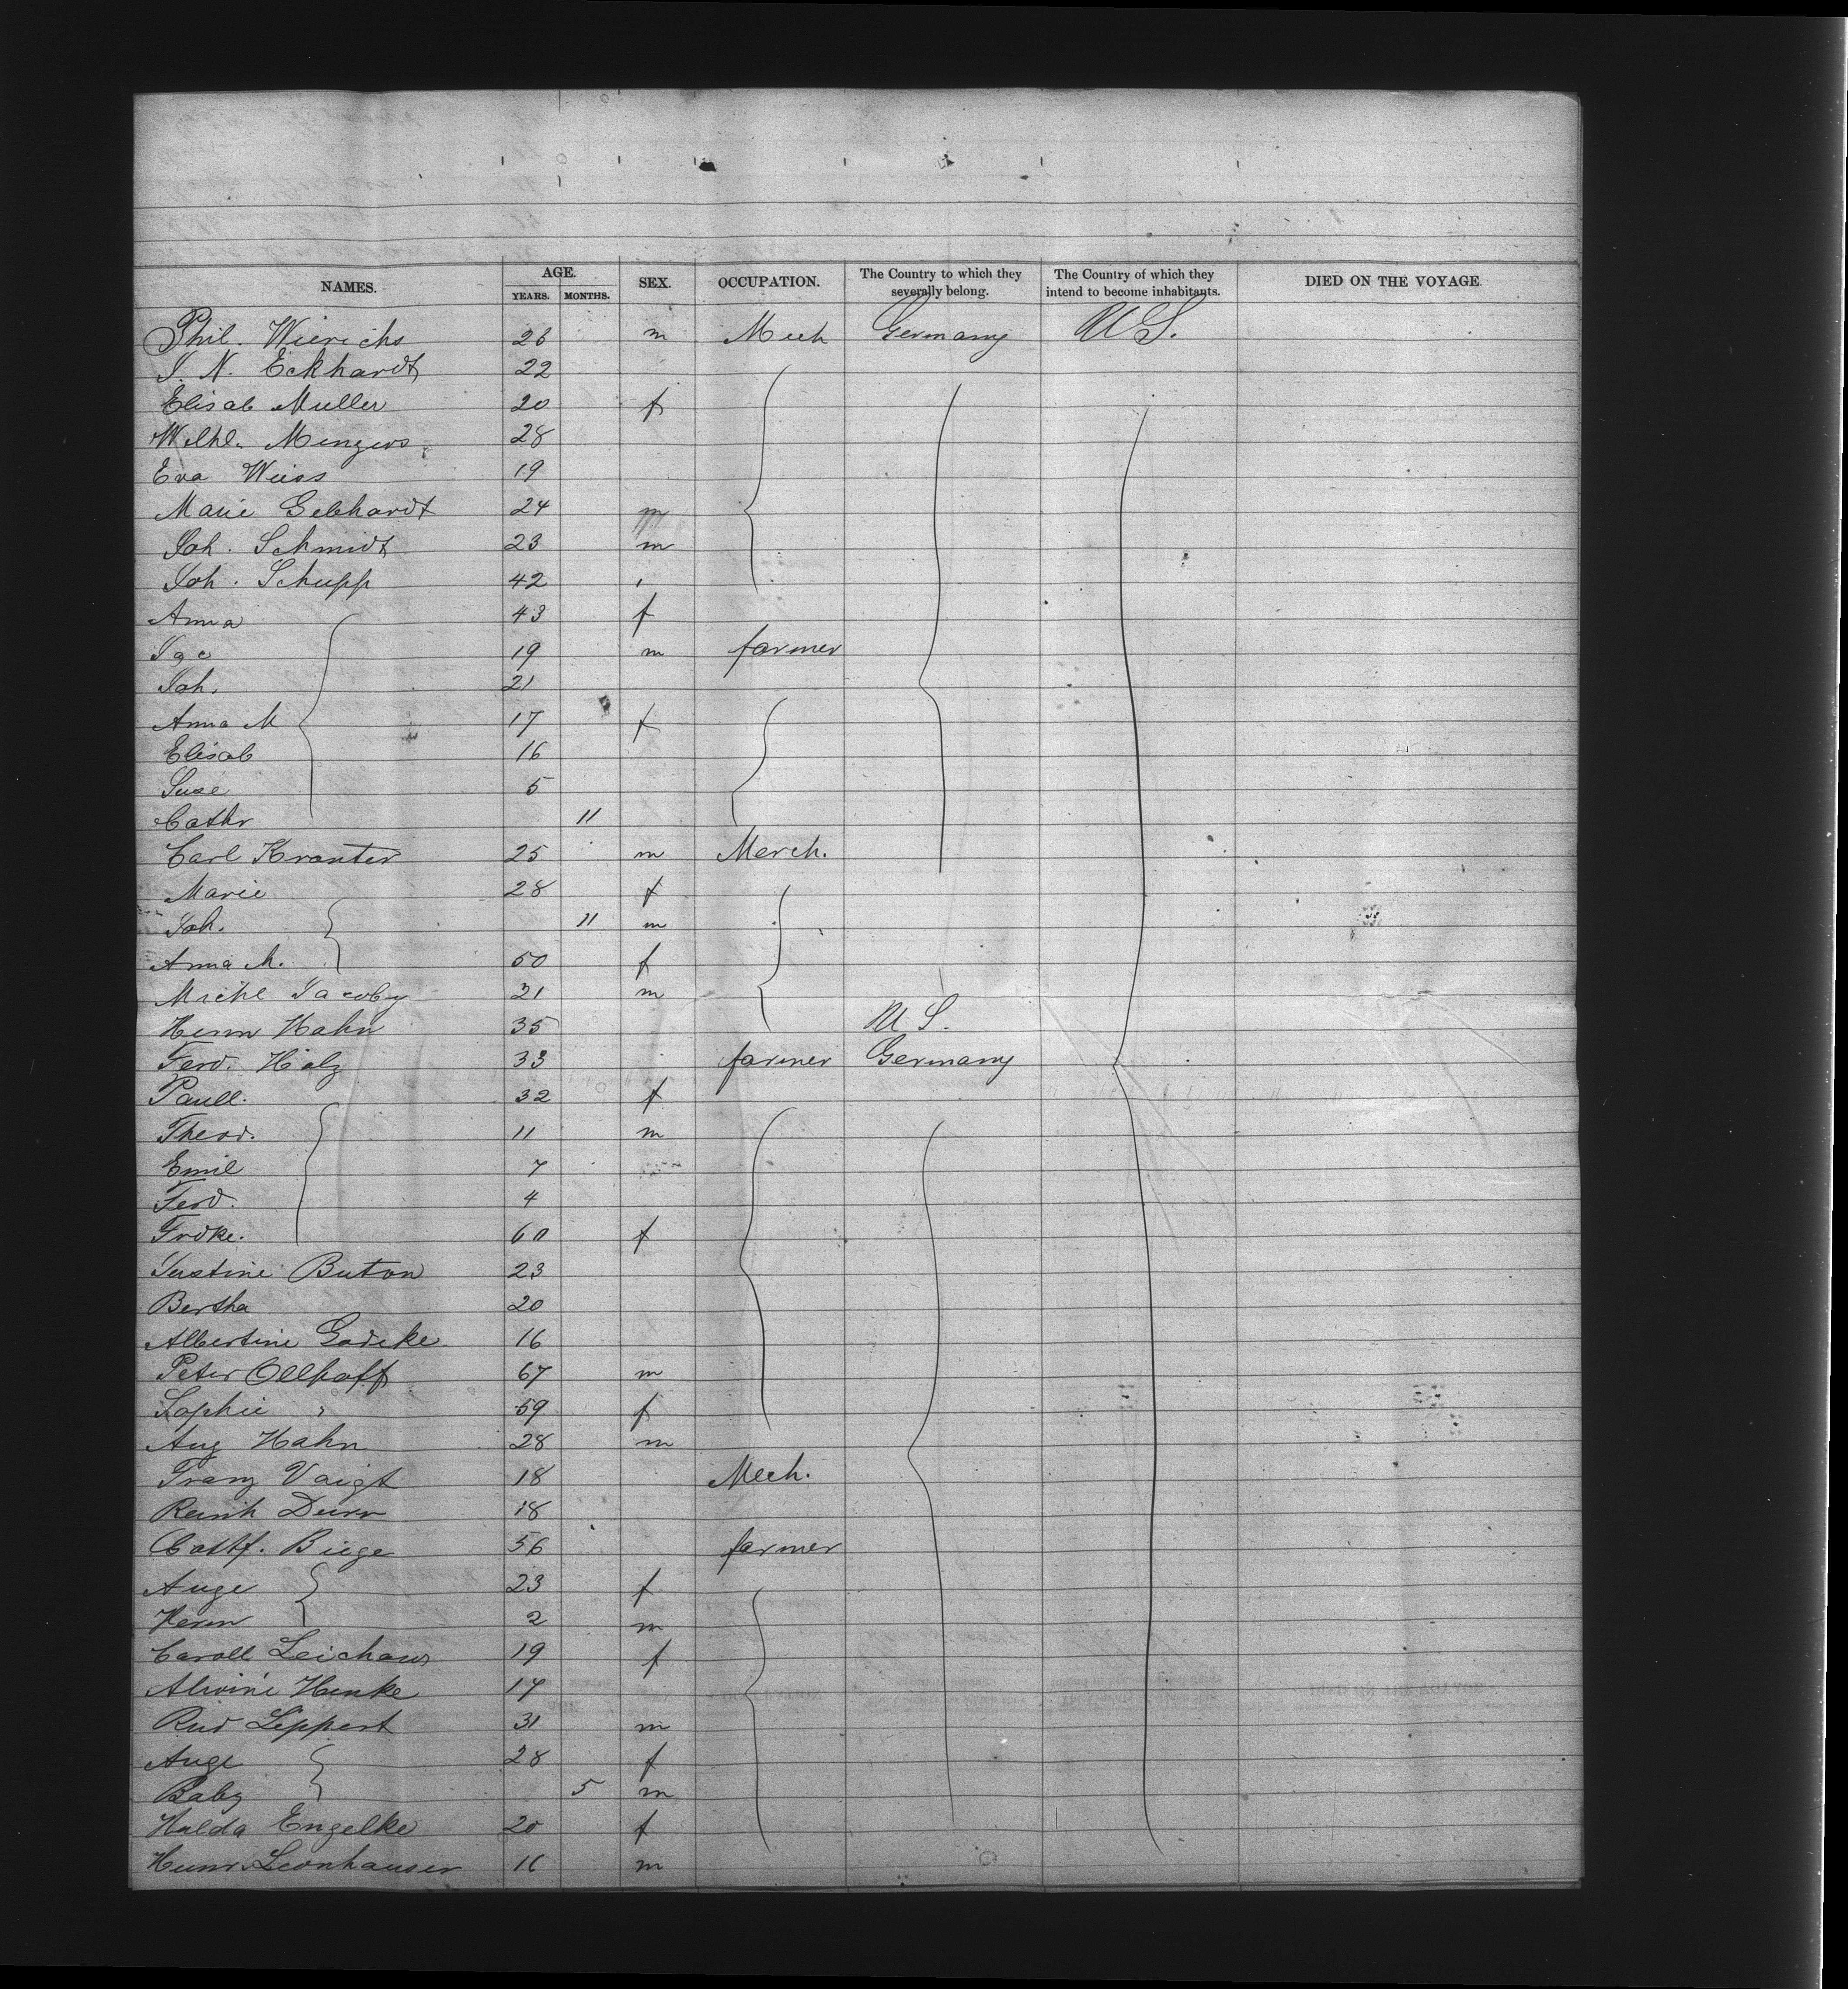 NAMES. AGE. YEARS. MONTHS. SEX. OCCUPATION. The Country to which they severally belong. The Country of which they intend to become inhabitants. DIED ON THE VOYAGE.
Phil. Wierichs 26 m Mech Germany U S.
J. N. Eckhardt 22
Elisab Muller 20 f
Wilhl. Mengers 28
Eva Weiss 19
Marie Gebhardt 24 m
Joh. Schmidt 23 m
Joh. Schupp 42 "
Anna 43 f
Jac 19 m farmer
Joh. 21
Anna M 17 f
Elisab 16
Suse 5
Cathr 11
Carl Kranter 25 m Merch.
Marie 28 f
Joh. 11 m
Anna M. 50 f
Michl Jacoby 21 m
Herm Hahn 35 U S.
Ferd. Holz 33 farmer Germany
Paull. 32 f
Theod. 11 m
Emil 7
Ferd. 4
Frdke. 60 f
Justine Buton 23
Bertha 20
Albertine Godeke 16
Peter Ollhoff 67 m
Sophie " 59 f
Aug Hahn 28 m
Franz Vaigt 18 Mech.
Reinh Durr 18
Gottf. Biege 56 farmer
Auge 23 f
Herm 2 m
Caroll Leichaus 19 f
Alwine Henke 17
Rud Lippert 31 m
Auge 28 f
Baby 5 m
Halda Engelke 20 f
Heinr. Leonhauser 16 m